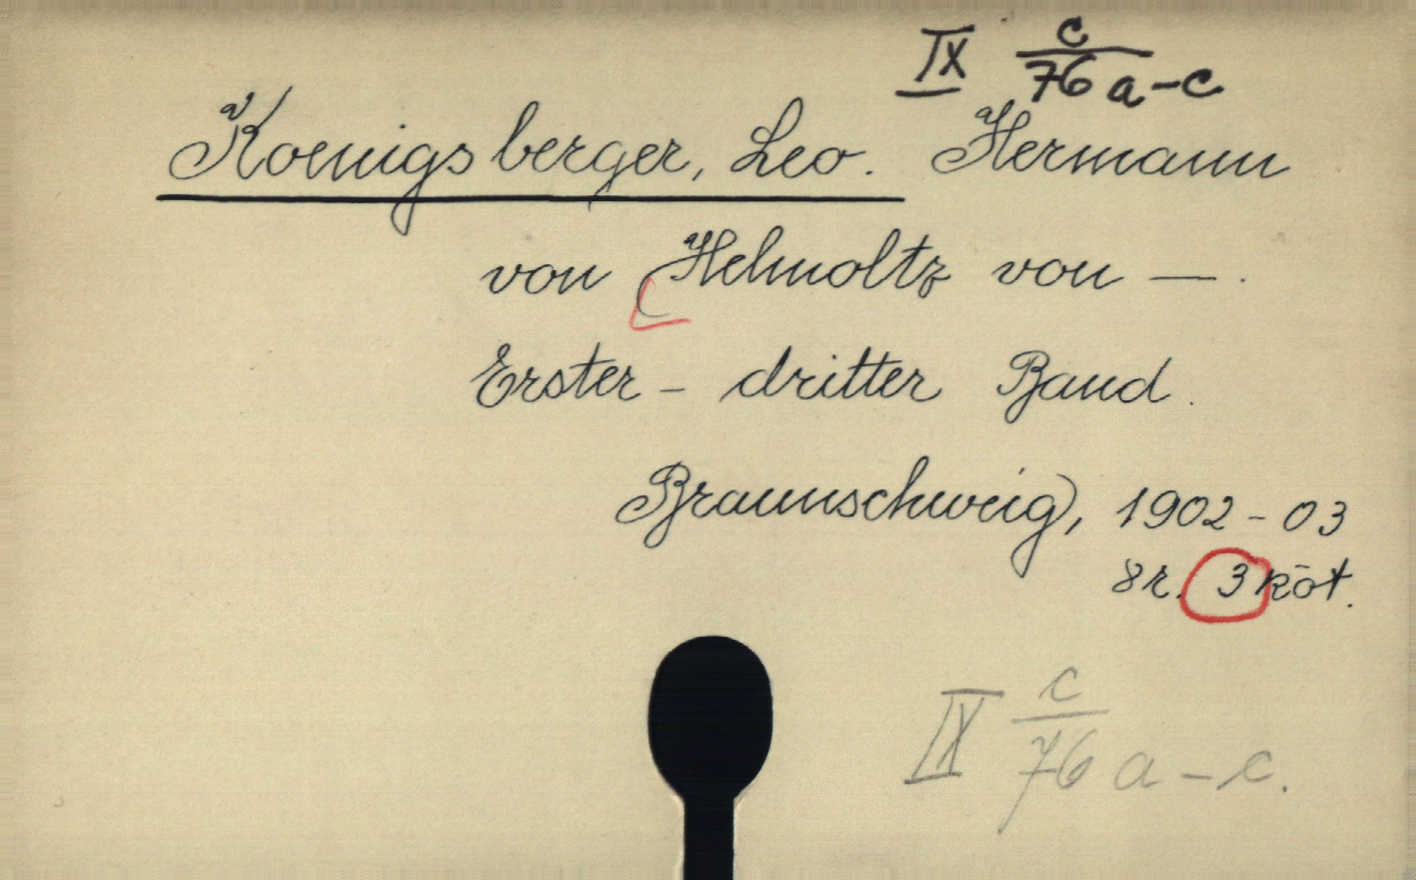 IX c/76 a-c
Koenigsberger, Leo. Hermann
von Helmoltz von — .
Erster - dritter Band.
Braunschweig, 1902-03
8r. 3 köt.
IX c/76 a-c.